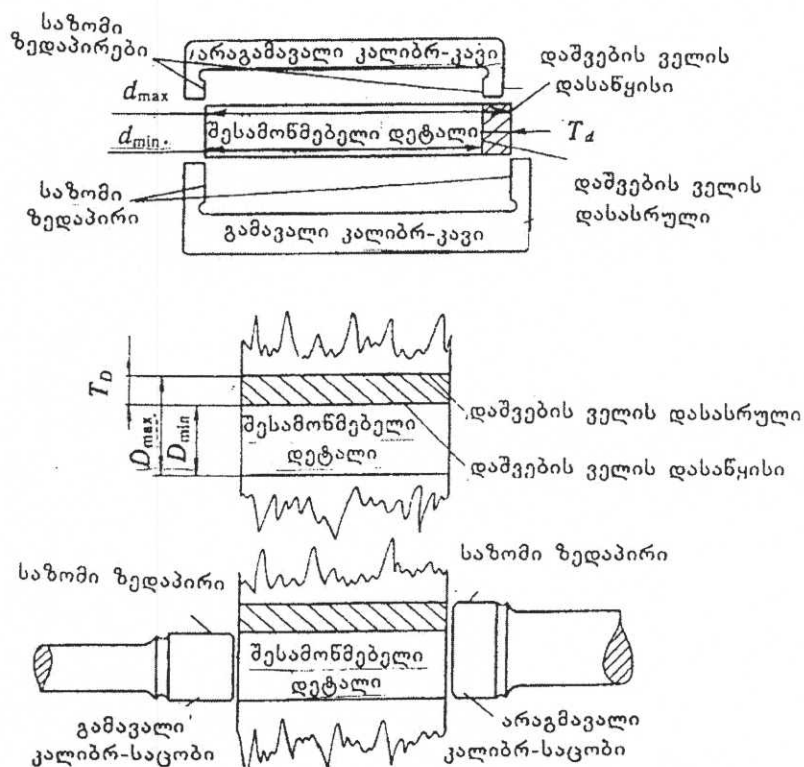 საზომი
ზედაპირები
არაგამავალი კალიბრ-კავი
დაშვების ველის
დასაწყისი
d max
d min.
შესამოწმებელი დეტალი
T d
საზომი
ზედაპირი
დაშვების ველის
დასასრული
გამავალი კალიბრ-კავი
T D
D max
D min
შესამოწმებელი
დეტალი
დაშვების ველის დასასრული
დაშვების ველის დასაწყისი
საზომი ზედაპირი
საზომი ზედაპირი
შესამოწმებელი
დეტალი
გამავალი
კალიბრ-საცობი
არაგმავალი
კალიბრ-საცობი